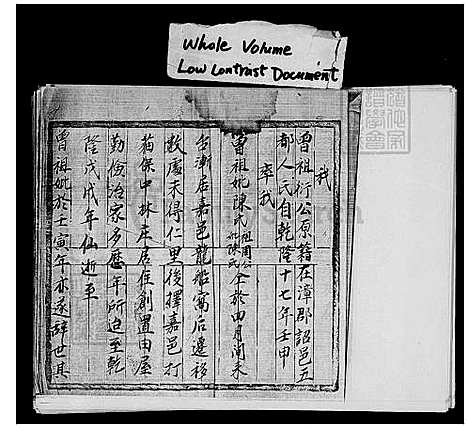 Whole Volume
Low Contrast Document
我
曾祖衍公原籍在漳郡詔邑五
都人氏自乾隆十七年壬申
率我
曾祖妣陳氏祖周公妣陳氏仝於由月蘭來
台漸居嘉邑龍船窩后遷移
數處未得仁里後擇嘉邑打
猫保中林庄居住創置田屋
勤儉治家多歷年所迨至乾
隆戊戌年仙逝至
曾祖妣於壬寅年亦遂辞世其